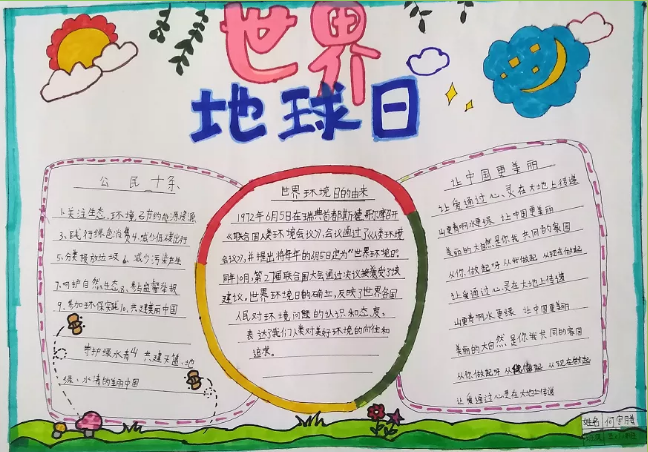 世界
地球日
公民十条
1.关注生态环境 2.节约能源资源
3.践行绿色消费 4.减少低碳出行
5.分类投放垃圾 6.减少污染产生
7.呵护自然生态 8.参与监督举报
9.参加环保实践 10.共建美丽中国
守护绿水青山 共建天蓝、地
绿、水清的美丽中国
世界环境日的由来
1972年6月5日在瑞典首都斯德哥尔摩召开
《联合国人类环境会议》,会议通过了《人类环境
会议》,并提出将每年的6月5日定为“世界环境日”。
同年10月,第27届联合国大会通过决议接受了该
建议,世界环境日的确立,反映了世界各国
人民对环境问题的认识和态度,
表达了我们人类对美好环境的向往和
追求。
让中国更美丽
让爱通过心灵在大地上传递
山更青啊水更绿 让中国更美丽
美丽的大自然是你我共同的家园
从你做起好 从我做起 从现在做起
让爱通过心灵在大地上传递
山更青啊水更绿 让中国更美丽
美丽的大自然是你我共同的家园
从你做起好 从我做起 从现在做起
让爱通过心灵在大地上传递
姓名 何宇
班级